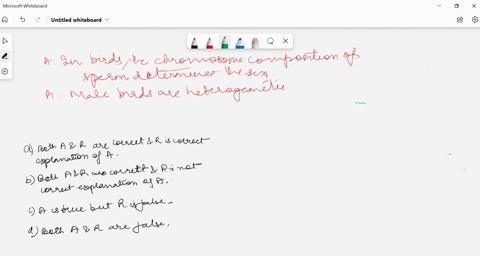 Microsoft Whiteboard
Untitled whiteboard
A: In birds, the chromosome composition of
sperm determines the sex.
R: Male birds are heterogametic
a) Both A & R are correct & R is correct
explanation of A.
b) Both A & R are correct & R is not
correct explanation of A.
c) A is true but R is false.
d) Both A & R are false.